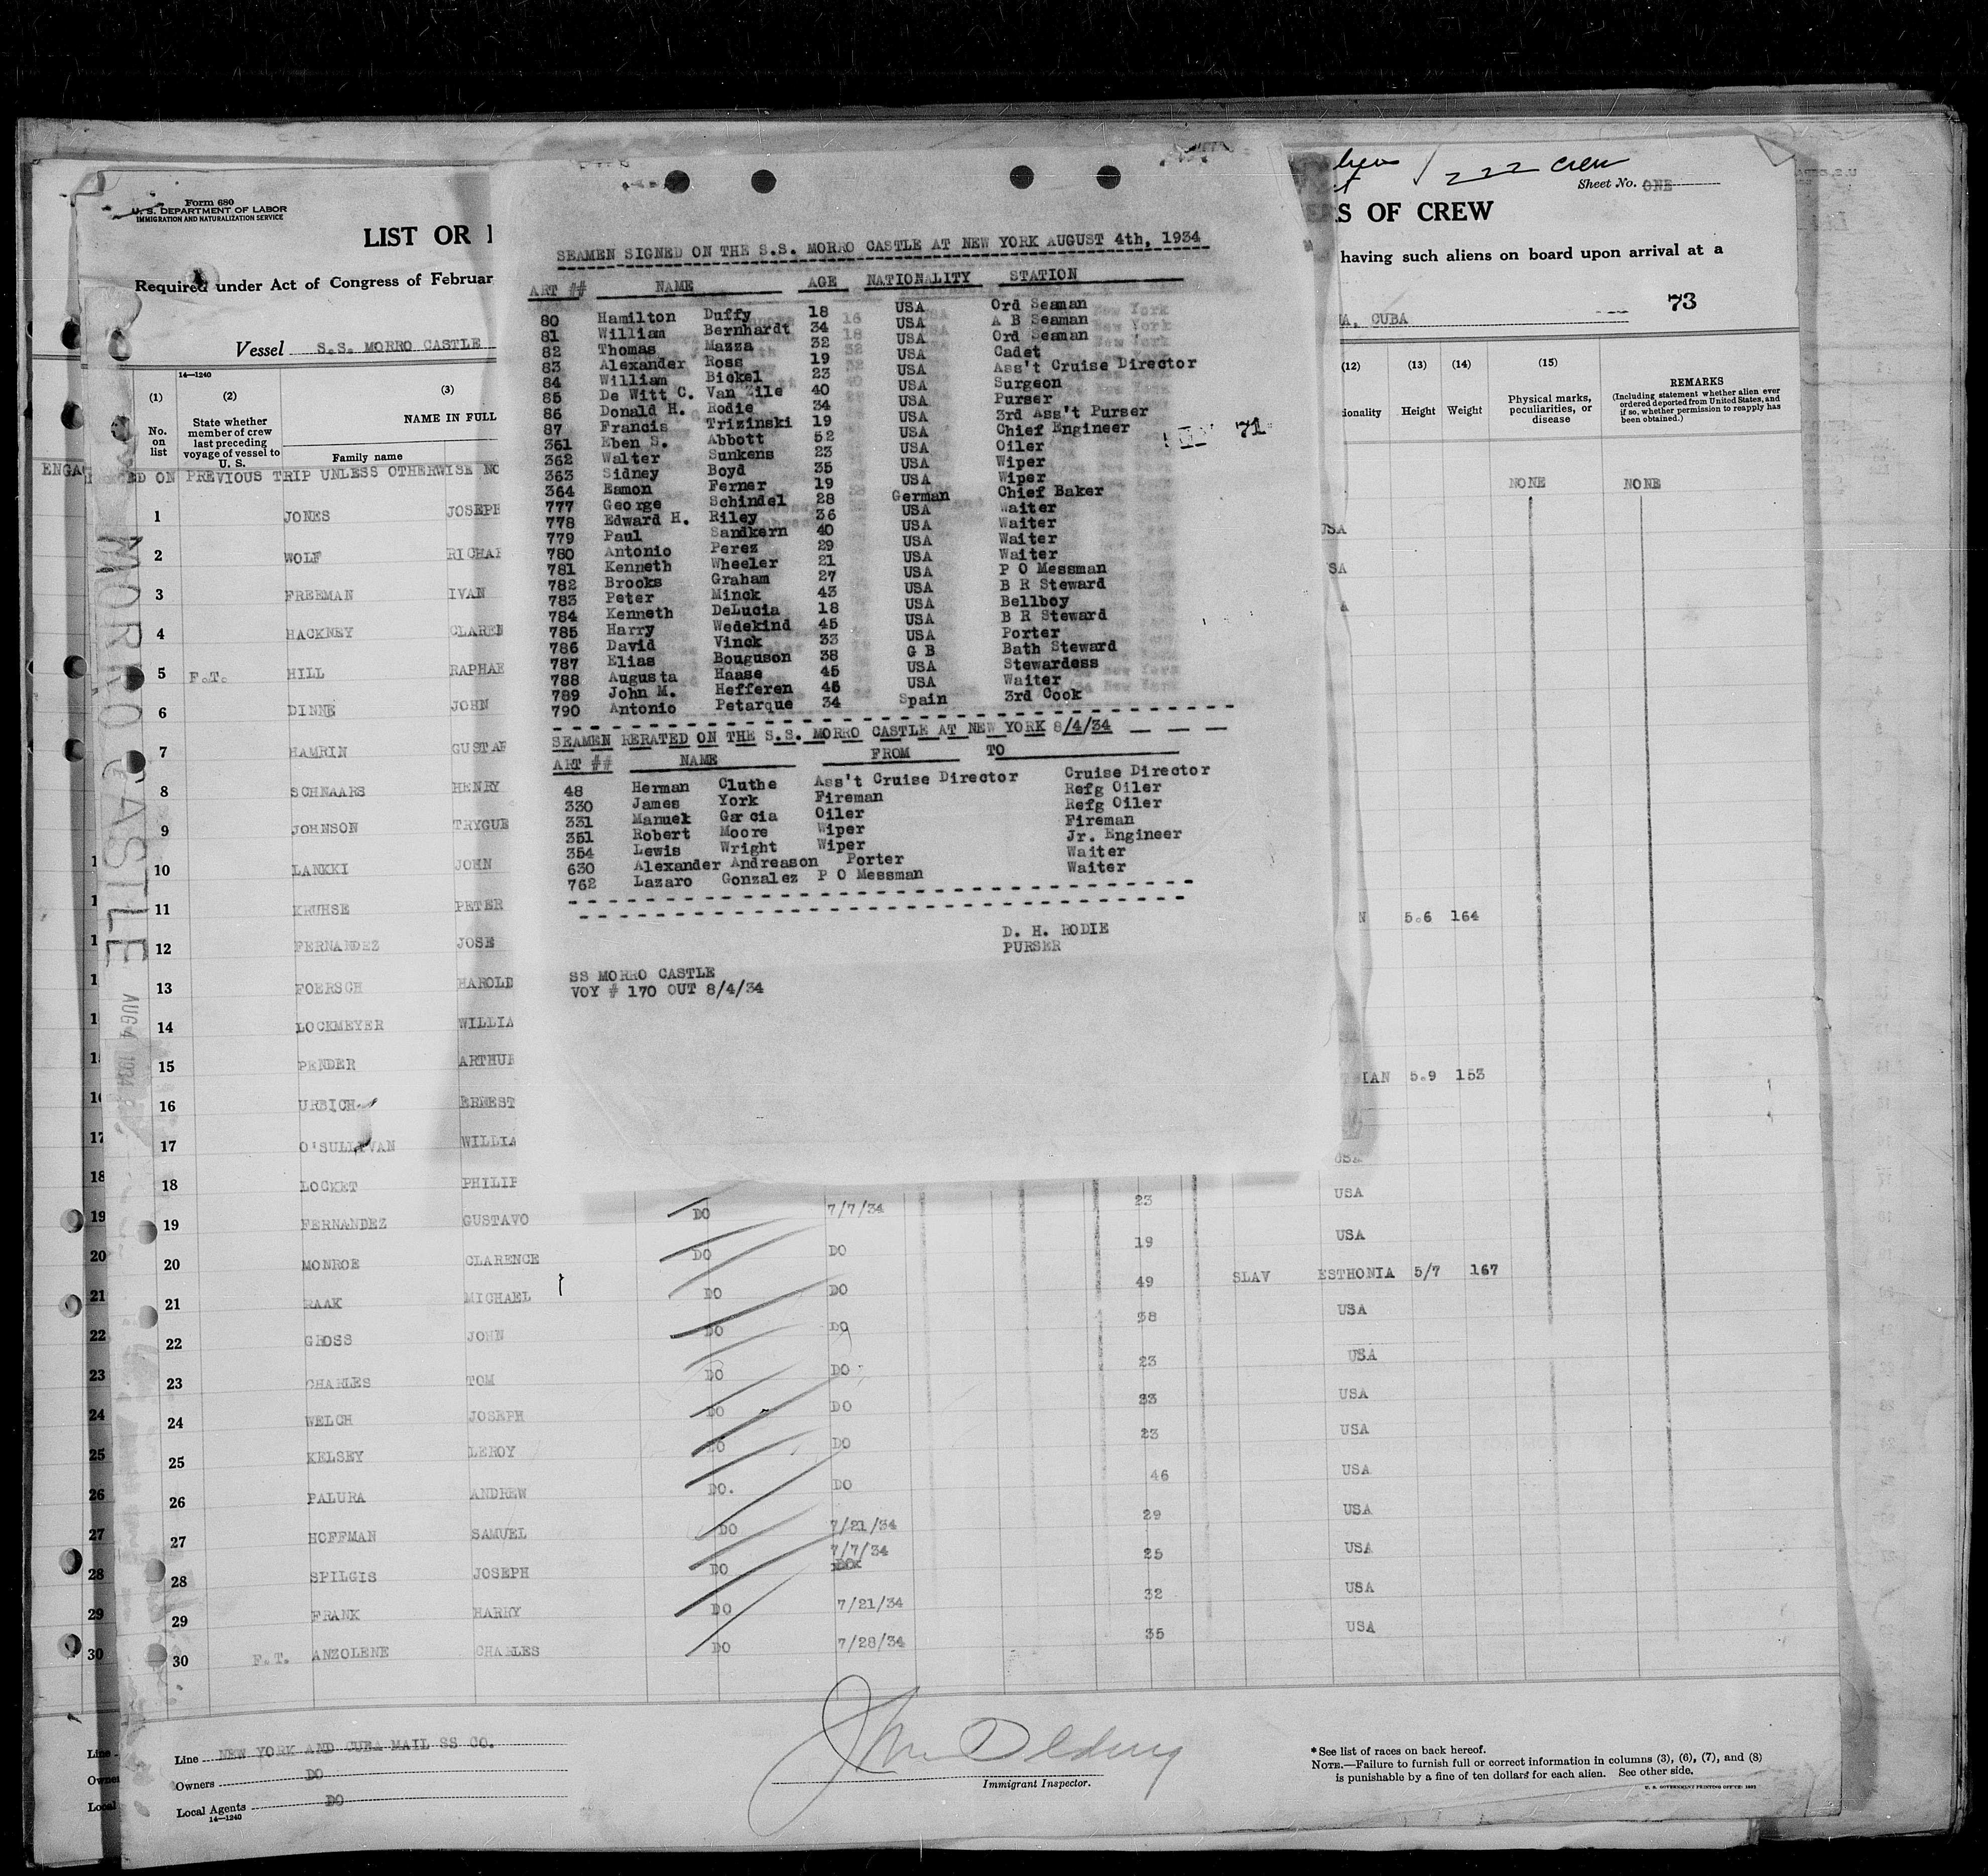 222 crew
Sheet No. ONE
Form 680
U. S. DEPARTMENT OF LABOR
IMMIGRATION AND NATURALIZATION SERVICE
LIST OR
RS OF CREW
Required under Act of Congress of Februar
having such aliens on board upon arrival at a
73
Vessel S.S. MORRO CASTLE
A, CUBA
SEAMEN SIGNED ON THE S.S. MORRO CASTLE AT NEW YORK AUGUST 4th, 1934
ART ## NAME AGE NATIONALITY STATION
80 Hamilton Duffy 18 USA Ord Seaman
81 William Bernhardt 34 USA A B Seaman
82 Thomas Mazza 32 USA Ord Seaman
83 Alexander Ross 19 USA Cadet
84 William Bickel 23 USA Ass't Cruise Director
85 De Witt C. Van Zile 40 USA Surgeon
86 Donald H. Rodie 34 USA Purser
87 Francis Trizinski 19 USA 3rd Ass't Purser
361 Eben S. Abbott 52 USA Chief Engineer
362 Walter Sunkens 23 USA Oiler
363 Sidney Boyd 35 USA Wiper
364 Eamon Ferner 19 USA Wiper
777 George Schindel 28 German Chief Baker
778 Edward H. Riley 36 USA Waiter
779 Paul Sandkern 40 USA Waiter
780 Antonio Perez 29 USA Waiter
781 Kenneth Wheeler 21 USA Waiter
782 Brooks Graham 27 USA P O Messman
783 Peter Minck 43 USA B R Steward
784 Kenneth DeLucia 18 USA Bellboy
785 Harry Wedekind 45 USA B R Steward
786 David Vinck 33 USA Porter
787 Elias Bouguson 38 G B Bath Steward
788 Augusta Haase 45 USA Stewardess
789 John M. Hefferen 45 USA Waiter
790 Antonio Petarque 34 Spain 3rd Cook
71
SEAMEN RERATED ON THE S.S. MORRO CASTLE AT NEW YORK 8/4/34
ART ## NAME FROM TO
48 Herman Cluthe Ass't Cruise Director Cruise Director
330 James York Fireman Refg Oiler
331 Manuek Garcia Oiler Refg Oiler
351 Robert Moore Wiper Fireman
354 Lewis Wright Wiper Jr. Engineer
630 Alexander Andreason Porter Waiter
762 Lazaro Gonzalez P O Messman Waiter
D. H. RODIE
PURSER
SS MORRO CASTLE
VOY # 170 OUT 8/4/34
14—1240
(1) (2) (3) (12) (13) (14) (15)
No. on list
State whether member of crew last preceding voyage of vessel to U. S.
NAME IN FULL
Family name
ionality Height Weight
Physical marks, peculiarities, or disease
REMARKS
(Including statement whether alien ever ordered deported from United States, and if so, whether permission to reapply has been obtained.)
ENGA
ED ON PREVIOUS TRIP UNLESS OTHERWISE NO
NONE NONE
1 JONES JOSEPH USA
2 WOLF RICHAR SA
3 FREEMAN IVAN A
4 HACKNEY CLAREN
5 F.T. HILL RAPHAE
6 DINNE JOHN
7 HAMRIN GUSTAF
8 SCHNAARS HENRY
9 JOHNSON TRYGUE
10 LANKKI JOHN
11 KRUHSE PETER N 5.6 164
12 FERNANDEZ JOSE
13 FOERSCH HAROLD
14 LOCKMEYER WILLIA
15 PENDER ARTHUR IAN 5.9 153
16 URBICH ERNEST
17 O'SULLIVAN WILLIA USA
18 LOCKET PHILIP USA
19 FERNANDEZ GUSTAVO DO 7/7/34 23 USA
20 MONROE CLARENCE DO DO 19
21 RAAK MICHAEL DO DO 49 SLAV ESTHONIA 5/7 167
22 GROSS JOHN DO DO 38 USA
23 CHARLES TOM DO DO 23 USA
24 WELCH JOSEPH DO DO 33 USA
25 KELSEY LEROY DO DO 23 USA
26 PALURA ANDREW DO. DO 46 USA
27 HOFFMAN SAMUEL DO 7/21/34 29 USA
28 SPILGIS JOSEPH DO 7/7/34 25 USA
29 FRANK HARRY DO 7/21/34 32 USA
30 F.T. ANZOLENE CHARLES DO 7/28/34 35 USA
MORRO CASTLE AUG 4 1934
Line NEW YORK AND CUBA MAIL SS CO.
Owners DO
Local Agents DO
14—1240
Immigrant Inspector.
*See list of races on back hereof.
NOTE.—Failure to furnish full or correct information in columns (3), (6), (7), and (8)
is punishable by a fine of ten dollars for each alien. See other side.